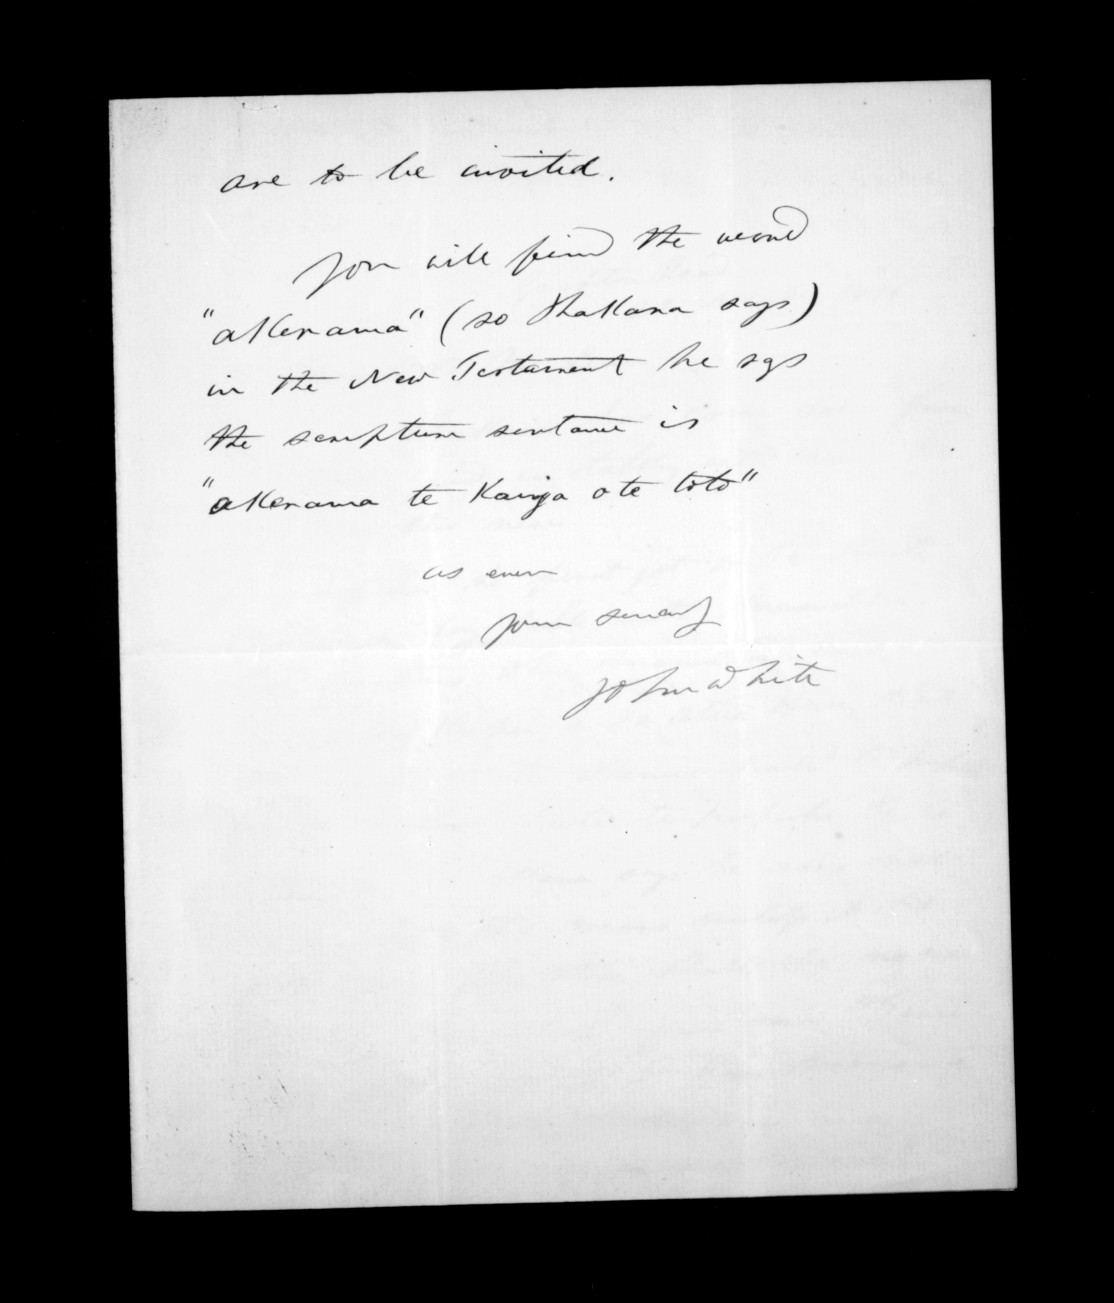 are to be invited.
You will find the word
"akerama" (so Hakana says)
in the New Testament he sys
the scripture sentance is
"akerama te Kainga o te toto"
as ever
your
John White